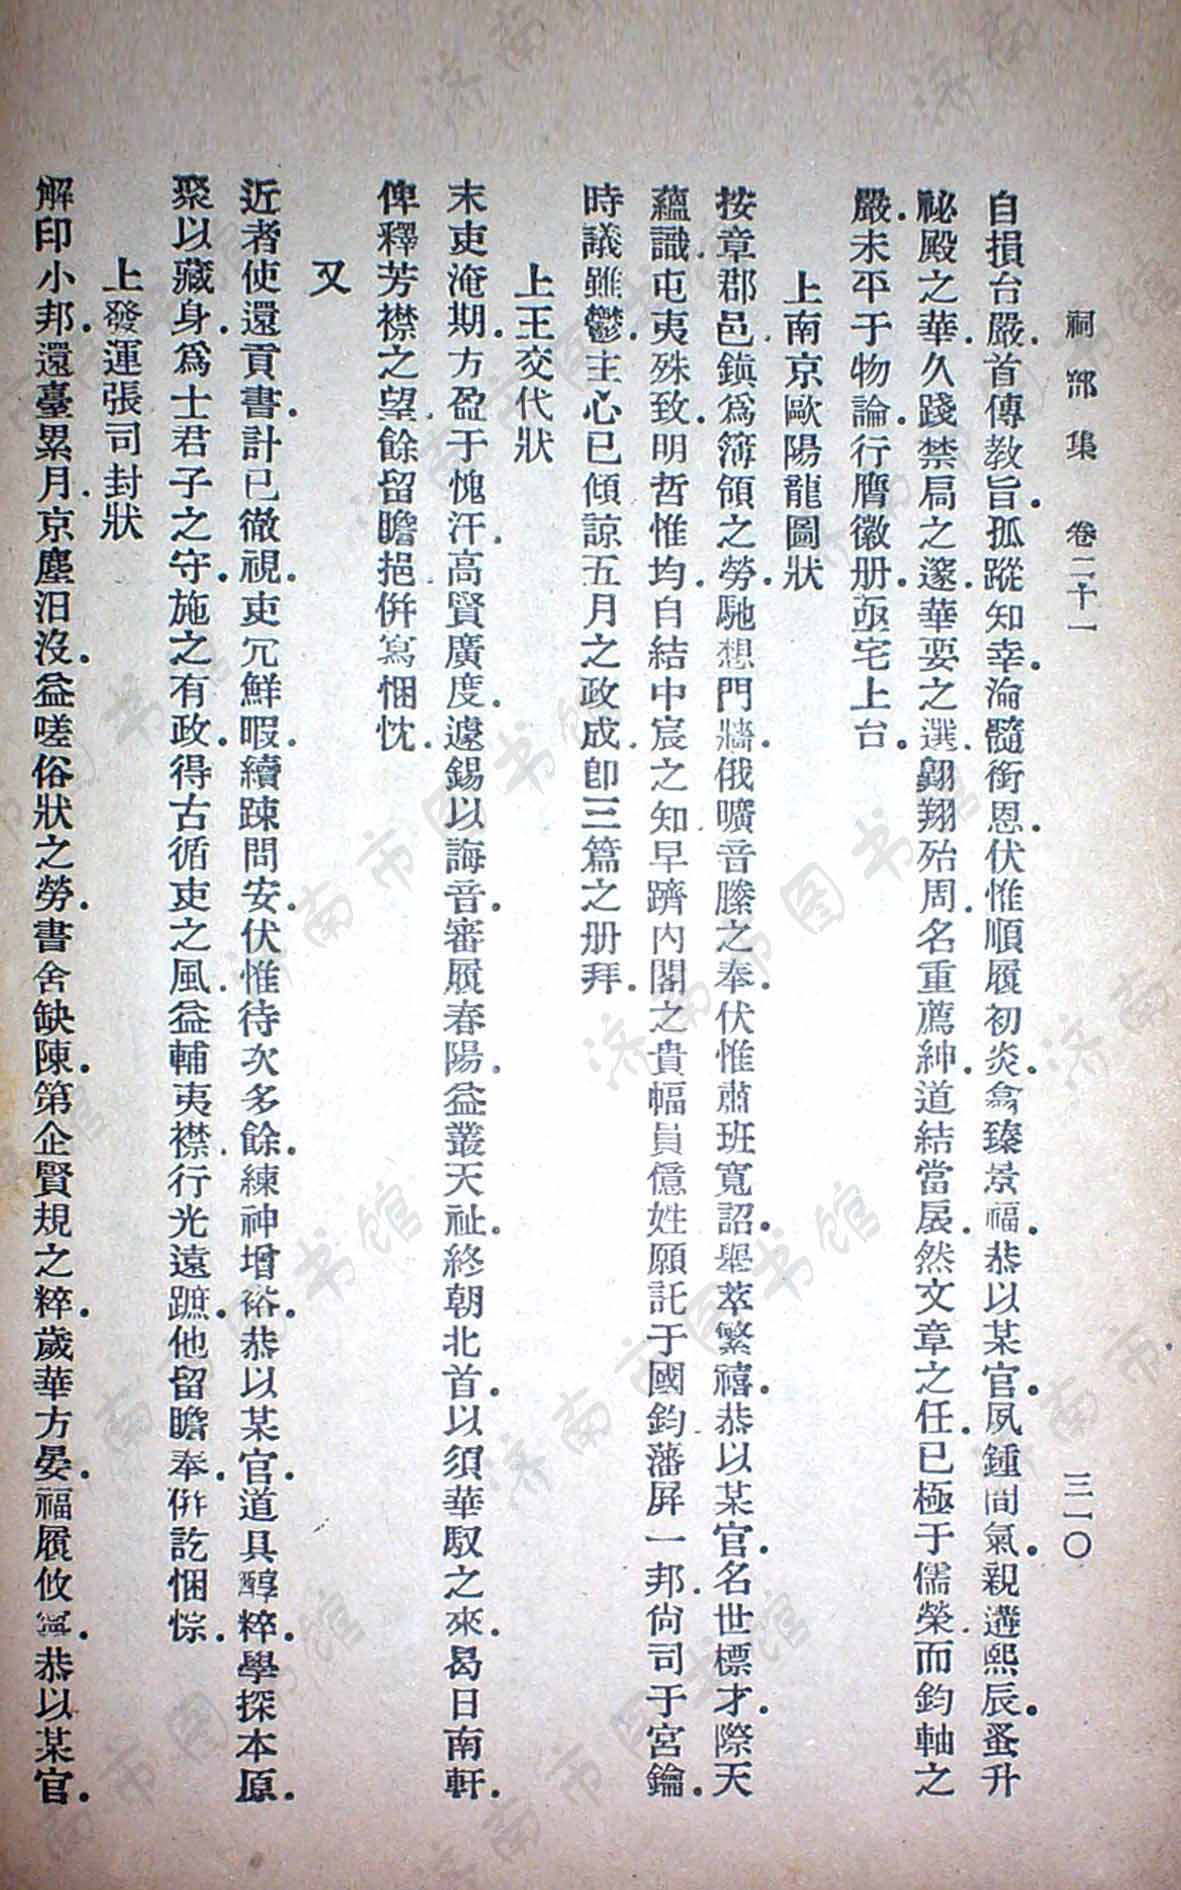 祠部集　卷二十一　三一〇
自損台嚴．首傳教旨．孤蹤知幸．淪髓銜恩．伏惟順履初炎．翕臻景福．恭以某官．夙鍾間氣．親遘熙辰．蚤升
祕殿之華．久踐禁局之邃．華要之選．翱翔殆周．名重薦紳．道結當扆．然文章之任．已極于儒榮．而鈞軸之
嚴．未平于物論．行膺徽册．亟宅上台．
上南京歐陽龍圖狀
按章郡邑．鎮爲簿領之勞．馳想門牆．俄曠音縢之奉．伏惟肅班寬詔．舉萃繁禧．恭以某官．名世標才．際天
蘊識．屯夷殊致．明哲惟均．自結中宸之知．早躋內閣之貴．幅員億姓．願託于國鈞．藩屏一邦．尙司于宮鑰．
時議雖鬱．主心已傾．諒五月之政成．卽三篇之册拜．
上王交代狀
末吏淹期．方盈于愧汗．高賢廣度．遽錫以誨音．審履春陽．益叢天祉．終朝北首．以須華馭之來．曷日南軒．
俾釋芳襟之望．餘留瞻挹．併寫悃忱．
又
近者使還貢書．計已徹視．吏冗鮮暇．續踈問安．伏惟待次多餘．練神增裕．恭以某官．道具醇粹．學探本原．
聚以藏身．爲士君子之守．施之有政．得古循吏之風．益輔夷襟．行光遠蹠．他留瞻奉．併訖悃悰．
上發運張司封狀
解印小邦．還臺累月．京塵汨沒．益嗟俗狀之勞．書舍缺陳．第企賢規之粹．歲華方晏．福履攸寧．恭以某官．
濟南市图书馆